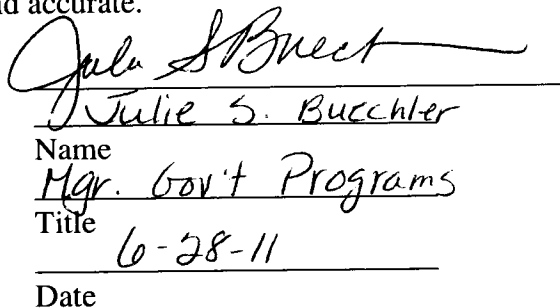 nd accurate.
Julie S. Buechler
Name
Mgr. Gov't Programs
Title
6-28-11
Date